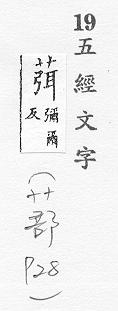 19五經文字
葞
彌爾
反
(艹部
P28)